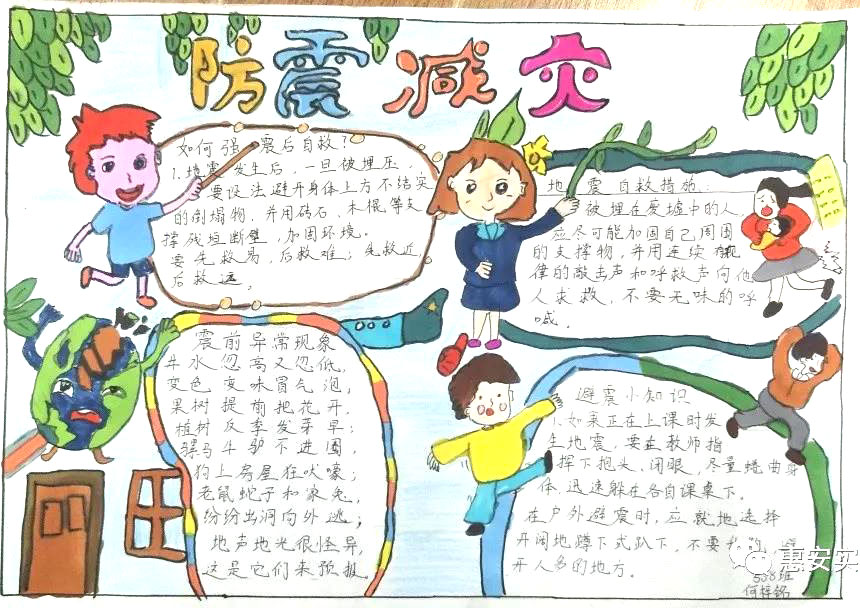 防震减灾
如何强震后自救?
1.地震发生后,一旦被埋压,
要设法避开身体上方不结实
的倒塌物,并用砖石、木棍等支
撑残垣断壁,加固环境。
要先救易,后救难;先救近,
后救远。
地震自救措施:
被埋在废墟中的人,
应尽可能加固自己周围
的支撑物,并用连续有规
律的敲击声和呼救声向他
人求救,不要无味的呼
喊。
震前异常现象
井水忽高又忽低,
变色变味冒气泡,
果树提前把花开,
植树反季发芽早;
骡马牛驴不进圈,
狗上房屋狂吠嚎;
老鼠蛇子和家兔,
纷纷出洞向外逃;
地声地光很怪异,
这是它们来预报。
避震小知识
1.如果正在上课时发
生地震,要在教师指
挥下抱头、闭眼、尽量蜷曲身
体,迅速躲在各自课桌下。
在户外避震时,应就地选择
开阔地蹲下式趴下,不要
开人多的地方。
惠安实
508班
何梓铭